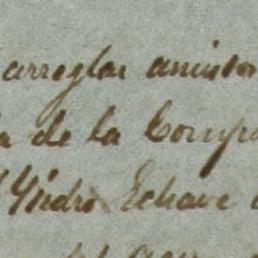 arreglar amistos
a de la Compa
Ysidro Echave